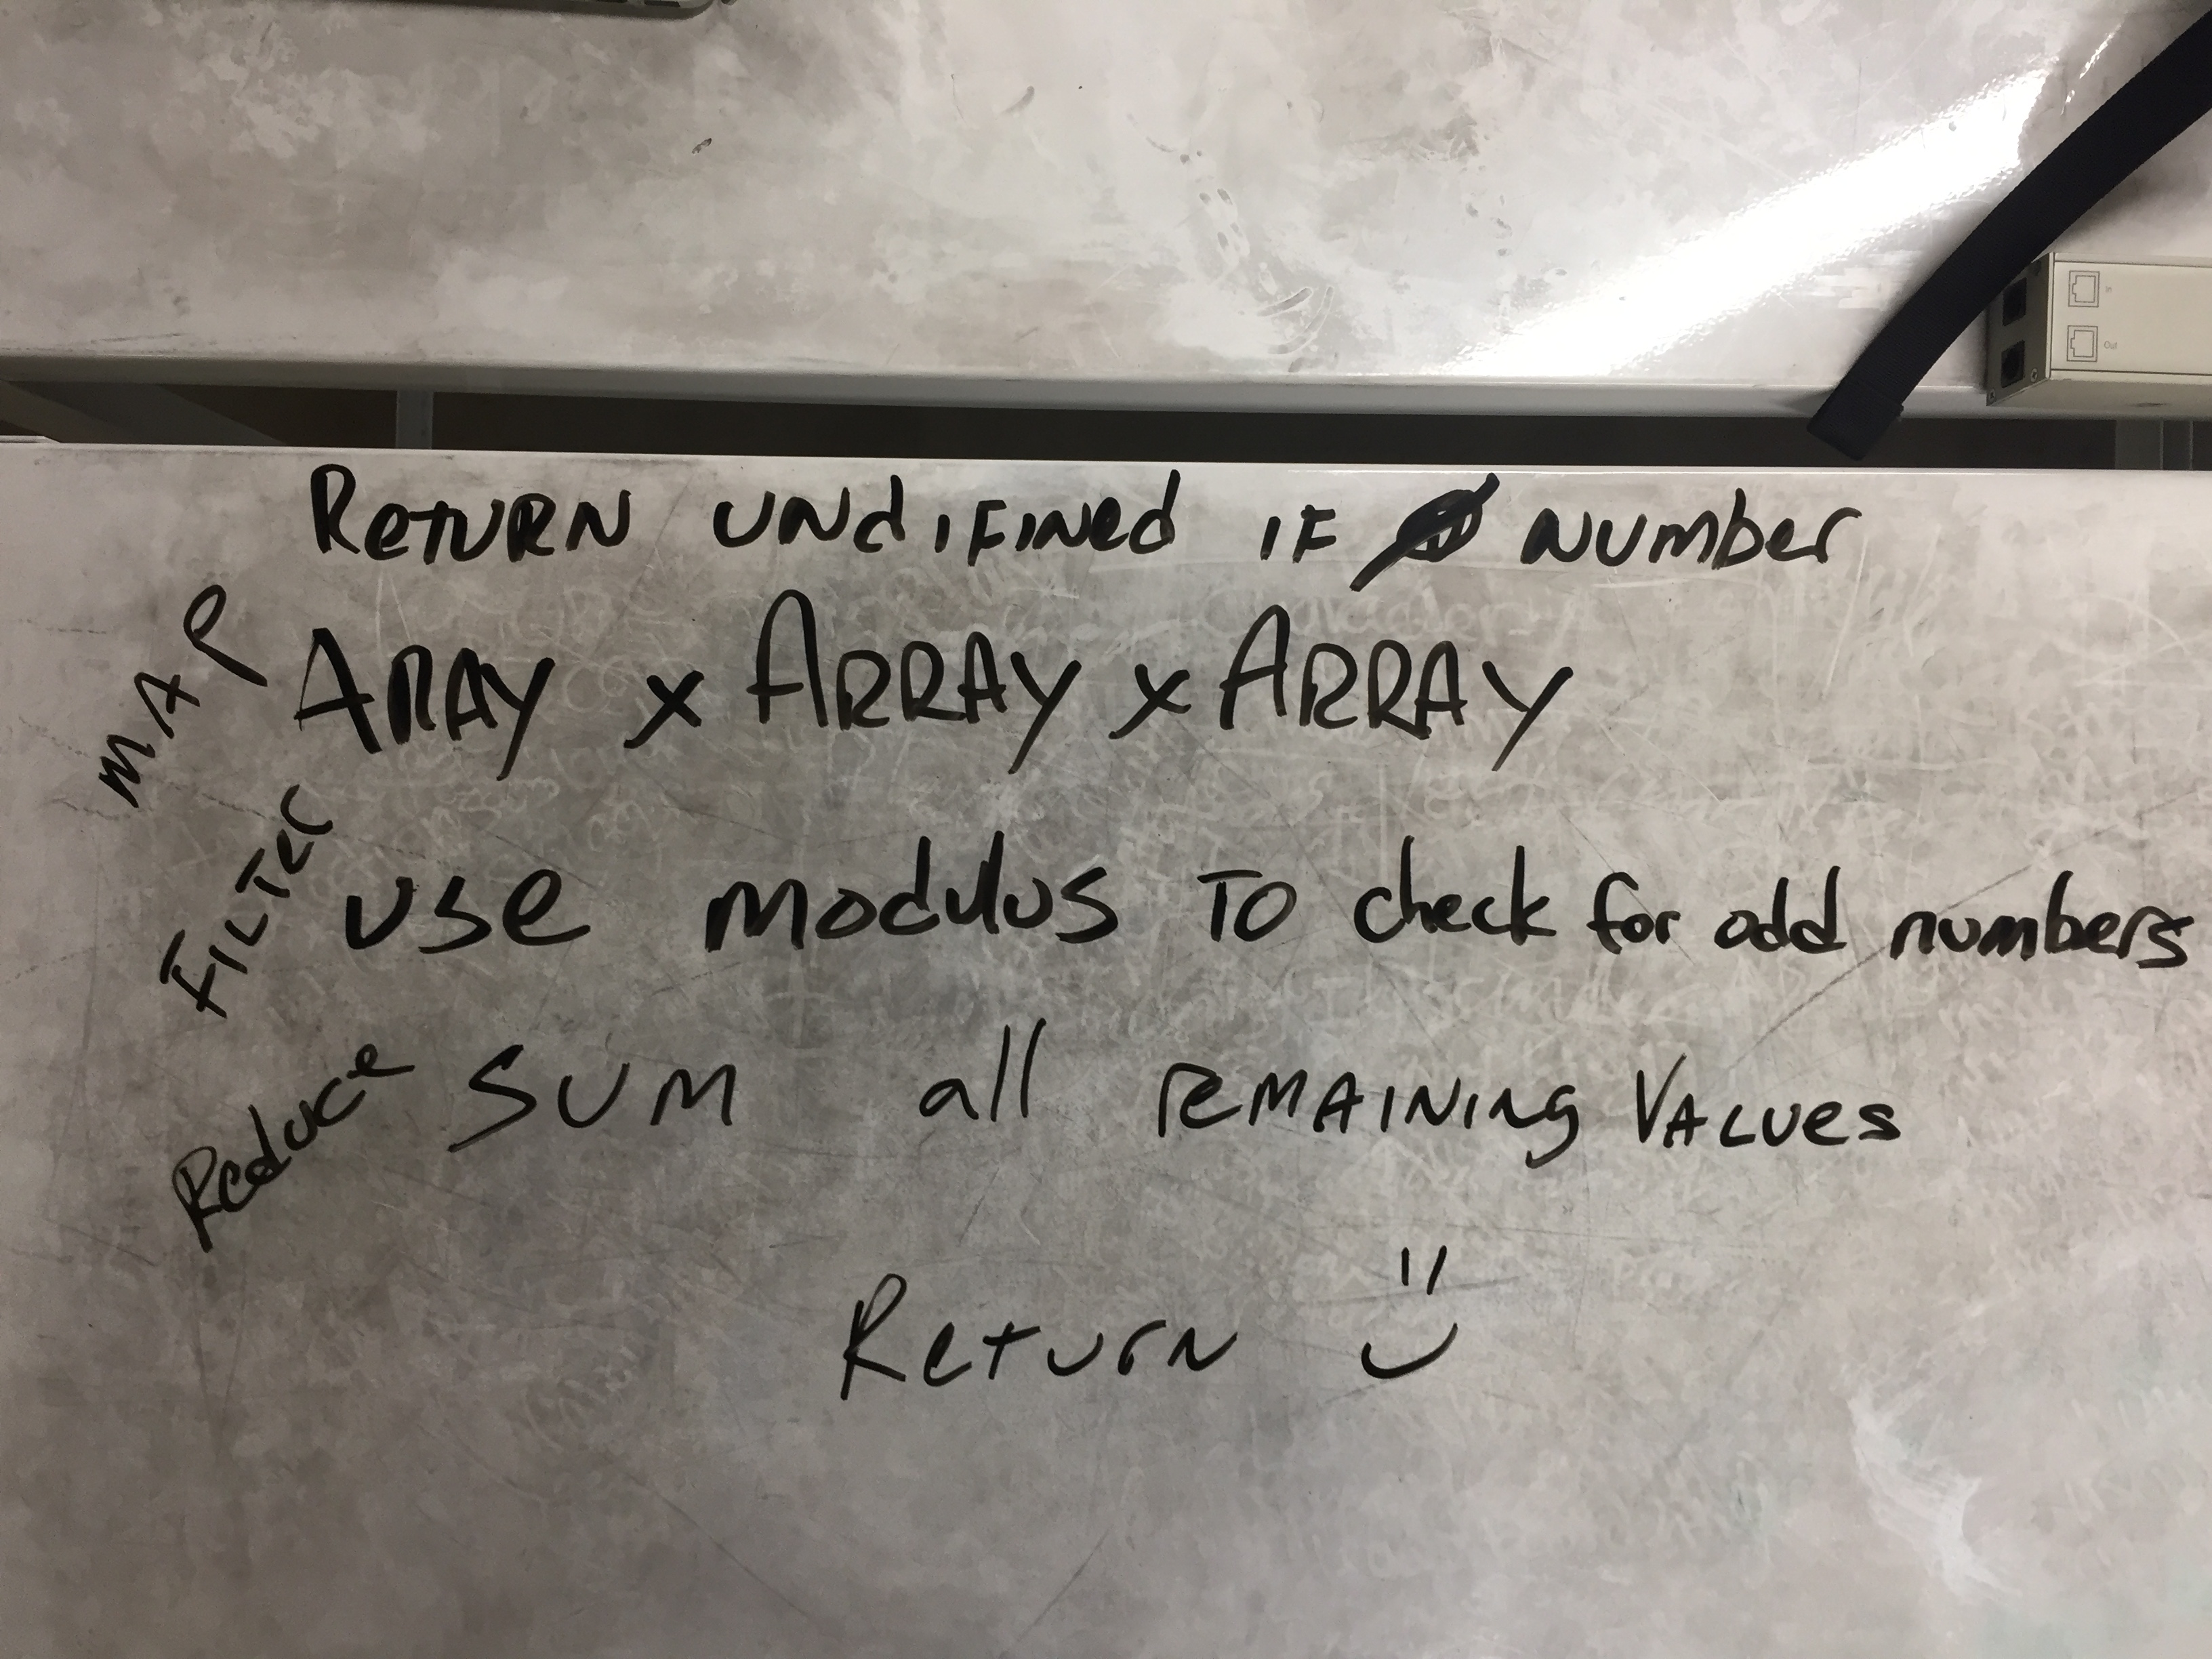 Return undifined if number
MAP Array x Array x Array
Filter use modulus to check for odd numbers
Reduce Sum all remaining values
Return
In
Out